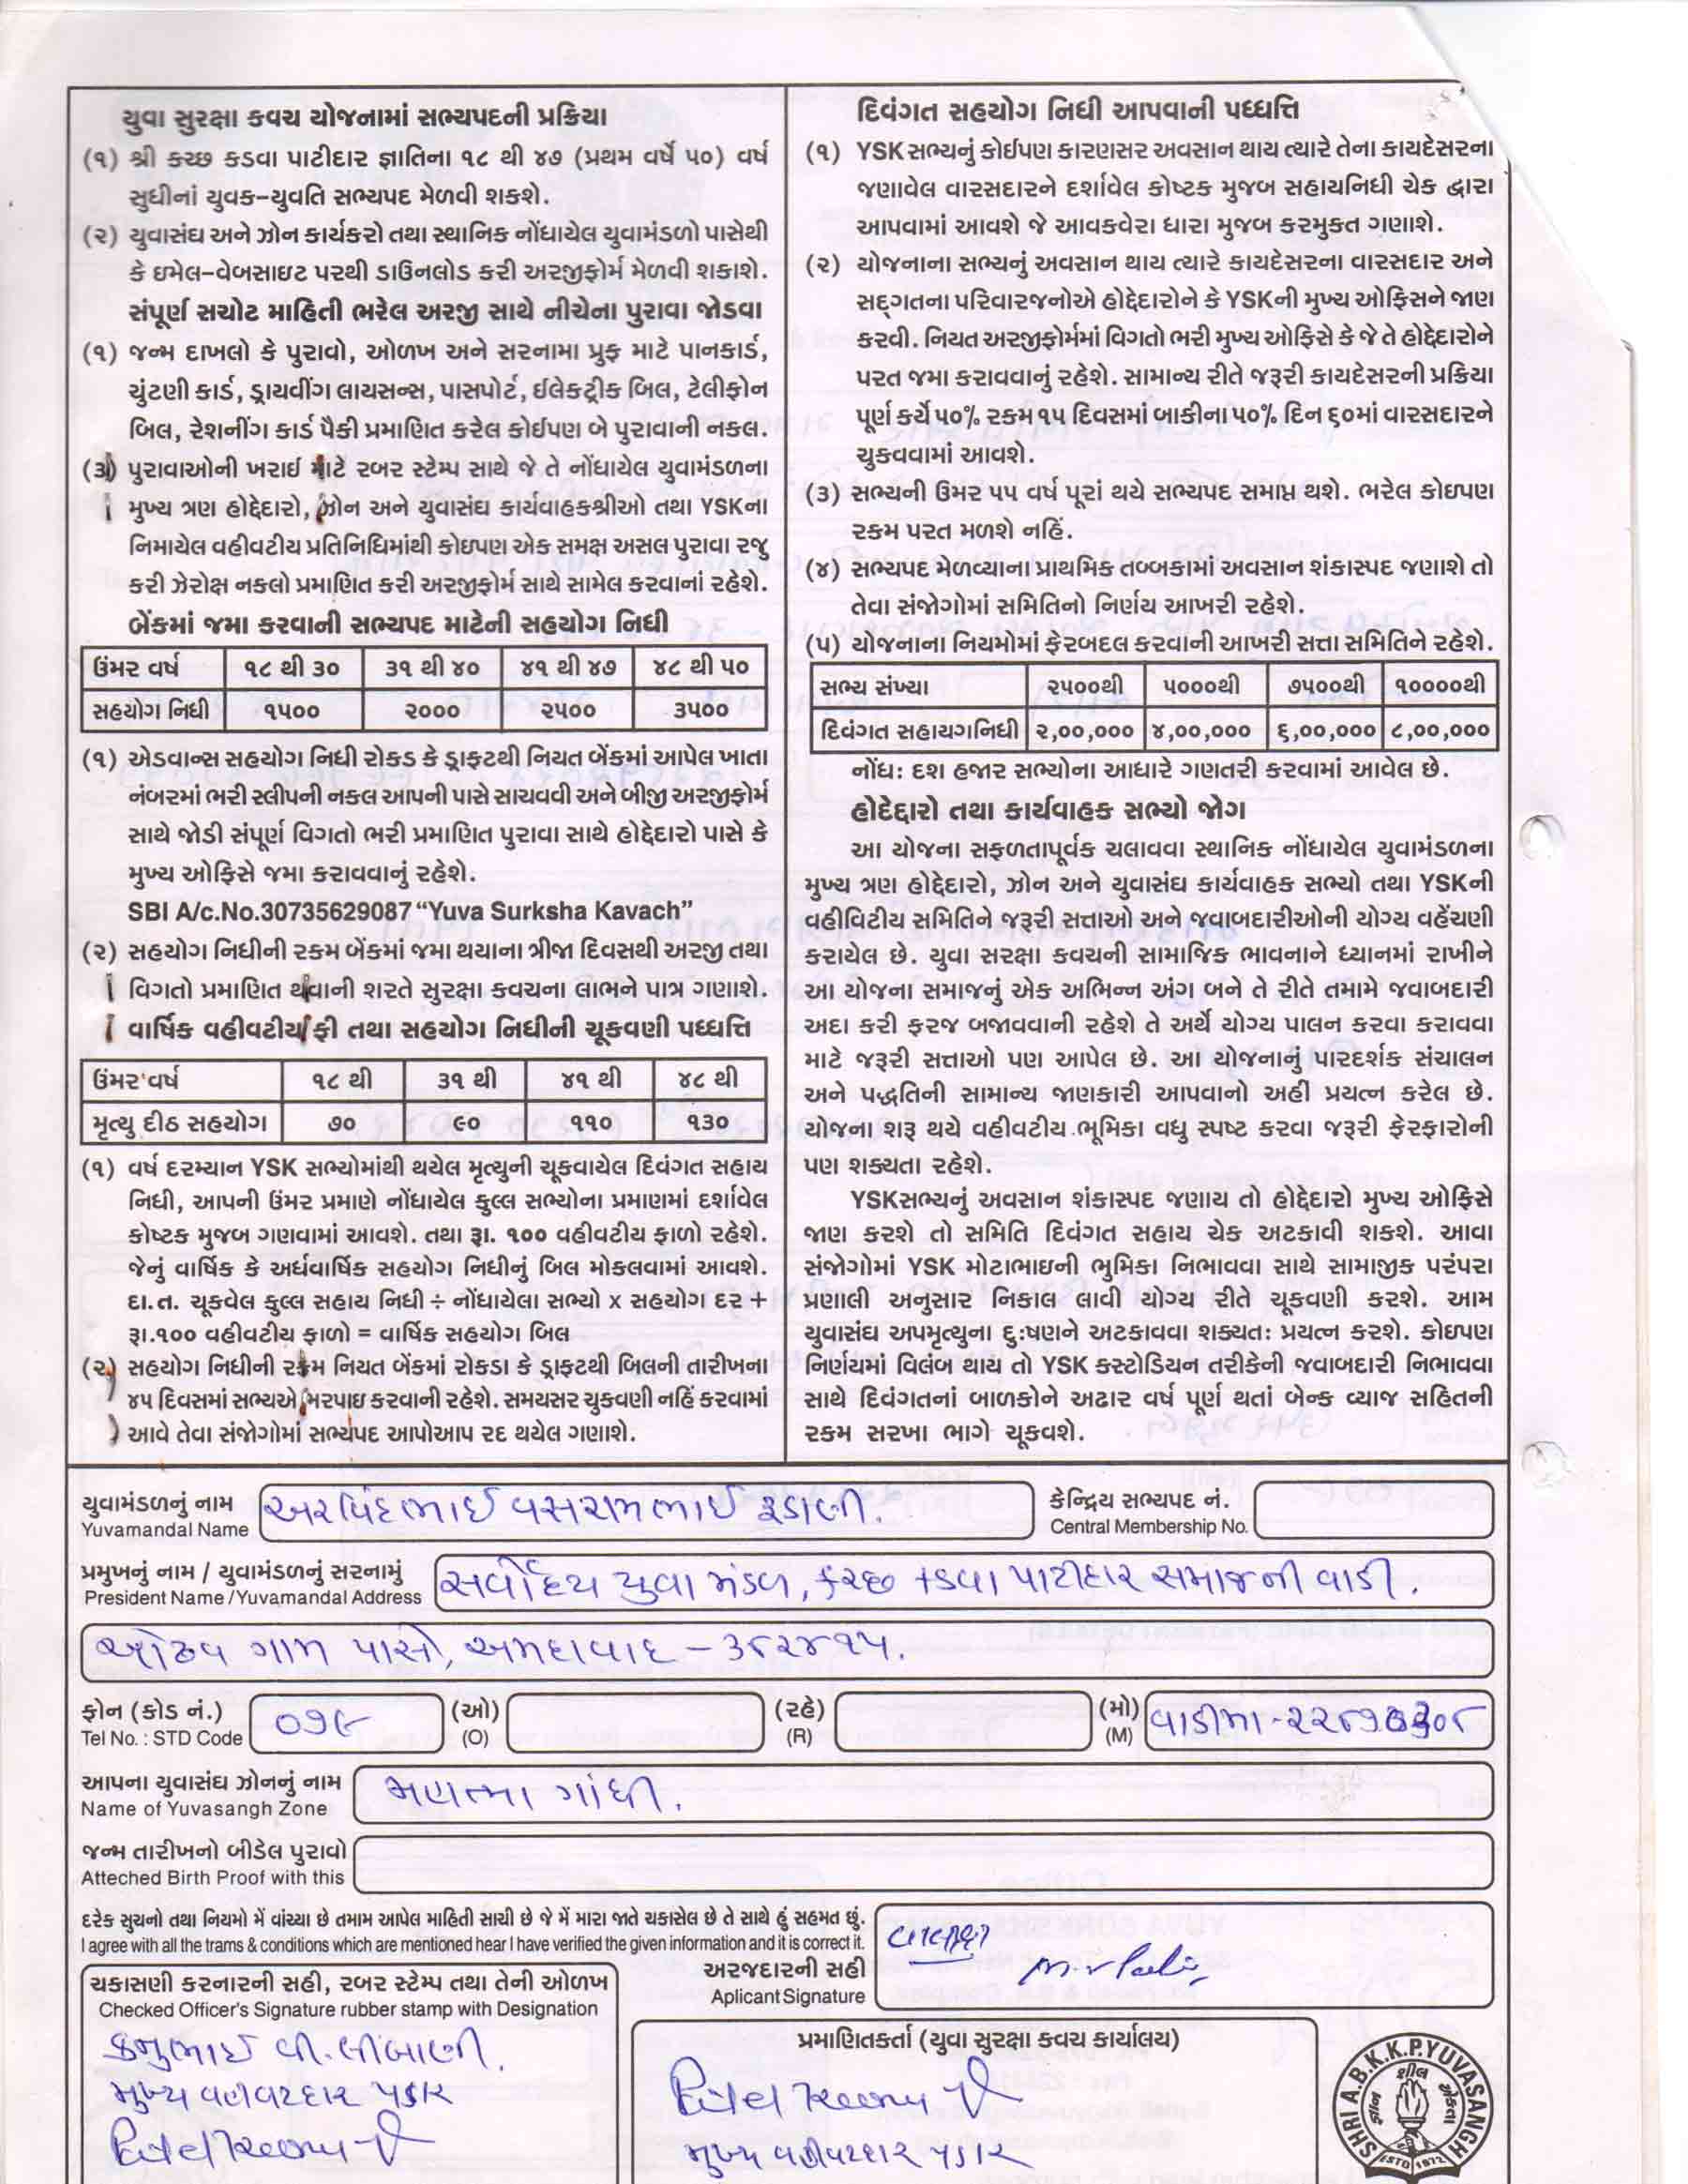 યુવા સુરક્ષા કવચ યોજનામાં સભ્યપદની પ્રક્રિયા
(૧) શ્રી કચ્છ કડવા પાટીદાર જ્ઞાતિના ૧૮ થી ૪૭ (પ્રથમ વર્ષે ૫૦) વર્ષ
સુધીનાં યુવક–યુવતિ સભ્યપદ મેળવી શકશે.
(૨) યુવાસંઘ અને ઝોન કાર્યકરો તથા સ્થાનિક નોંધાયેલ યુવામંડળો પાસેથી
કે ઇમેલ–વેબસાઇટ પરથી ડાઉનલોડ કરી અરજીફોર્મ મેળવી શકાશે.
સંપૂર્ણ સચોટ માહિતી ભરેલ અરજી સાથે નીચેના પુરાવા જોડવા
(૧) જન્મ દાખલો કે પુરાવો, ઓળખ અને સરનામા પ્રુફ માટે પાનકાર્ડ,
ચુંટણી કાર્ડ, ડ્રાયવીંગ લાયસન્સ, પાસપોર્ટ, ઈલેક્ટ્રીક બિલ, ટેલીફોન
બિલ, રેશનીંગ કાર્ડ પૈકી પ્રમાણિત કરેલ કોઈપણ બે પુરાવાની નકલ.
(૩) પુરાવાઓની ખરાઇ માટે રબર સ્ટેમ્પ સાથે જે તે નોંધાયેલ યુવામંડળના
મુખ્ય ત્રણ હોદ્દેદારો, ઝોન અને યુવાસંઘ કાર્યવાહકશ્રીઓ તથા YSKના
નિમાયેલ વહીવટીય પ્રતિનિધિમાંથી કોઇપણ એક સમક્ષ અસલ પુરાવા રજુ
કરી ઝેરોક્ષ નકલો પ્રમાણિત કરી અરજીફોર્મ સાથે સામેલ કરવાનાં રહેશે.
બેંકમાં જમા કરવાની સભ્યપદ માટેની સહયોગ નિધી
ઉંમર વર્ષ ૧૮ થી ૩૦ ૩૧ થી ૪૦ ૪૧ થી ૪૭ ૪૮ થી ૫૦
સહયોગ નિધી ૧૫૦૦ ૨૦૦૦ ૨૫૦૦ ૩૫૦૦
(૧) એડવાન્સ સહયોગ નિધી રોકડ કે ડ્રાફટથી નિયત બેંકમાં આપેલ ખાતા
નંબરમાં ભરી સ્લીપની નકલ આપની પાસે સાચવવી અને બીજી અરજીફોર્મ
સાથે જોડી સંપૂર્ણ વિગતો ભરી પ્રમાણિત પુરાવા સાથે હોદ્દેદારો પાસે કે
મુખ્ય ઓફિસે જમા કરાવવાનું રહેશે.
SBI A/c.No.30735629087 “Yuva Surksha Kavach”
(૨) સહયોગ નિધીની રકમ બેંકમાં જમા થયાના ત્રીજા દિવસથી અરજી તથા
વિગતો પ્રમાણિત થવાની શરતે સુરક્ષા કવચના લાભને પાત્ર ગણાશે.
વાર્ષિક વહીવટીય ફી તથા સહયોગ નિધીની ચૂકવણી પધ્ધતિ
ઉંમર વર્ષ ૧૮ થી ૩૧ થી ૪૧ થી ૪૮ થી
મૃત્યુ દીઠ સહયોગ ૭૦ ૯૦ ૧૧૦ ૧૩૦
(૧) વર્ષ દરમ્યાન YSK સભ્યોમાંથી થયેલ મૃત્યુની ચૂકવાયેલ દિવંગત સહાય
નિધી, આપની ઉંમર પ્રમાણે નોંધાયેલ કુલ્લ સભ્યોના પ્રમાણમાં દર્શાવેલ
કોષ્ટક મુજબ ગણવામાં આવશે. તથા રૂા. ૧૦૦ વહીવટીય ફાળો રહેશે.
જેનું વાર્ષિક કે અર્ધવાર્ષિક સહયોગ નિધીનું બિલ મોકલવામાં આવશે.
દા.ત. ચૂકવેલ કુલ્લ સહાય નિધી ÷ નોંધાયેલા સભ્યો x સહયોગ દર +
રૂા.૧૦૦ વહીવટીય ફાળો = વાર્ષિક સહયોગ બિલ
(૨) સહયોગ નિધીની રકમ નિયત બેંકમાં રોકડા કે ડ્રાફટથી બિલની તારીખના
૪૫ દિવસમાં સભ્યએ ભરપાઇ કરવાની રહેશે. સમયસર ચુકવણી નહિં કરવામાં
આવે તેવા સંજોગોમાં સભ્યપદ આપોઆપ રદ થયેલ ગણાશે.
દિવંગત સહયોગ નિધી આપવાની પધ્ધત્તિ
(૧) YSK સભ્યનું કોઈપણ કારણસર અવસાન થાય ત્યારે તેના કાયદેસરના
જણાવેલ વારસદારને દર્શાવેલ કોષ્ટક મુજબ સહાયનિધી ચેક દ્વારા
આપવામાં આવશે જે આવકવેરા ધારા મુજબ કરમુક્ત ગણાશે.
(૨) યોજનાના સભ્યનું અવસાન થાય ત્યારે કાયદેસરના વારસદાર અને
સદ્‌ગતના પરિવારજનોએ હોદ્દેદારોને કે YSKની મુખ્ય ઓફિસને જાણ
કરવી. નિયત અરજીફોર્મમાં વિગતો ભરી મુખ્ય ઓફિસે કે જે તે હોદ્દેદારોને
પરત જમા કરાવવાનું રહેશે. સામાન્ય રીતે જરૂરી કાયદેસરની પ્રક્રિયા
પૂર્ણ કર્યે ૫૦% રકમ ૧૫ દિવસમાં બાકીના ૫૦% દિન ૬૦માં વારસદારને
ચુકવવામાં આવશે.
(૩) સભ્યની ઉમર ૫૫ વર્ષ પૂરાં થયે સભ્યપદ સમાપ્ત થશે. ભરેલ કોઇપણ
રકમ પરત મળશે નહિં.
(૪) સભ્યપદ મેળવ્યાના પ્રાથમિક તબ્બકામાં અવસાન શંકાસ્પદ જણાશે તો
તેવા સંજોગોમાં સમિતિનો નિર્ણય આખરી રહેશે.
(૫) યોજનાના નિયમોમાં ફેરબદલ કરવાની આખરી સત્તા સમિતિને રહેશે.
સભ્ય સંખ્યા ૨૫૦૦થી ૫૦૦૦થી ૭૫૦૦થી ૧૦૦૦૦થી
દિવંગત સહાયગનિધી ૨,૦૦,૦૦૦ ૪,૦૦,૦૦૦ ૬,૦૦,૦૦૦ ૮,૦૦,૦૦૦
નોંધ: દશ હજાર સભ્યોના આધારે ગણતરી કરવામાં આવેલ છે.
હોદેદ્દારો તથા કાર્યવાહક સભ્યો જોગ
આ યોજના સફળતાપૂર્વક ચલાવવા સ્થાનિક નોંધાયેલ યુવામંડળના
મુખ્ય ત્રણ હોદ્દેદારો, ઝોન અને યુવાસંઘ કાર્યવાહક સભ્યો તથા YSKની
વહીવિટીય સમિતિને જરૂરી સત્તાઓ અને જવાબદારીઓની યોગ્ય વહેંચણી
કરાયેલ છે. યુવા સરક્ષા કવચની સામાજિક ભાવનાને ધ્યાનમાં રાખીને
આ યોજના સમાજનું એક અભિન્ન અંગ બને તે રીતે તમામે જવાબદારી
અદા કરી ફરજ બજાવવાની રહેશે તે અર્થે યોગ્ય પાલન કરવા કરાવવા
માટે જરૂરી સત્તાઓ પણ આપેલ છે. આ યોજનાનું પારદર્શક સંચાલન
અને પદ્ધતિની સામાન્ય જાણકારી આપવાનો અહી પ્રયત્ન કરેલ છે.
યોજના શરૂ થયે વહીવટીય ભૂમિકા વધુ સ્પષ્ટ કરવા જરૂરી ફેરફારોની
પણ શક્યતા રહેશે.
YSKસભ્યનું અવસાન શંકાસ્પદ જણાય તો હોદ્દેદારો મુખ્ય ઓફિસે
જાણ કરશે તો સમિતિ દિવંગત સહાય ચેક અટકાવી શકશે. આવા
સંજોગોમાં YSK મોટાભાઇની ભુમિકા નિભાવવા સાથે સામાજીક પરંપરા
પ્રણાલી અનુસાર નિકાલ લાવી યોગ્ય રીતે ચૂકવણી કરશે. આમ
યુવાસંઘ અપમૃત્યુના દુ:ષણને અટકાવવા શક્યત: પ્રયત્ન કરશે. કોઇપણ
નિર્ણયમાં વિલંબ થાય તો YSK કસ્ટોડિયન તરીકેની જવાબદારી નિભાવવા
સાથે દિવંગતનાં બાળકોને અઢાર વર્ષ પૂર્ણ થતાં બેન્ક વ્યાજ સહિતની
રકમ સરખા ભાગે ચૂકવશે.
યુવામંડળનું નામ અરવિંદભાઈ વસરામભાઈ રૂડાણી.
Yuvamandal Name
કેન્દ્રિય સભ્યપદ નં.
Central Membership No.
પ્રમુખનું નામ / યુવામંડળનું સરનામું સર્વોદય યુવા મંડળ, કચ્છ કડવા પાટીદાર સમાજની વાડી.
President Name /Yuvamandal Address
ઓઢવ ગામ પાસે, અમદાવાદ – ૩૮૨૪૧૫.
ફોન (કોડ નં.) ૦૭૯ (ઓ) (રહે) (મો) વાડીમા
Tel No. : STD Code (O) (R) (M)
આપના યુવાસંઘ ઝોનનું નામ મહાત્મા ગાંધી.
Name of Yuvasangh Zone
જન્મ તારીખનો બીડેલ પુરાવો
Atteched Birth Proof with this
દરેક સુચનો તથા નિયમો મેં વાંચ્યા છે તમામ આપેલ માહિતી સાચી છે જે મેં મારા જાતે ચકાસેલ છે તે સાથે હું સહમત છું.
I agree with all the trams & conditions which are mentioned hear I have verified the given information and it is correct it.
અરજદારની સહી
Aplicant Signature
ચકાસણી કરનારની સહી, રબર સ્ટેમ્પ તથા તેની ઓળખ
Checked Officer's Signature rubber stamp with Designation
કનુભાઈ વી. લીંબાણી.
મુખ્ય વહીવટદાર
પ્રમાણિતકર્તા (યુવા સુરક્ષા કવચ કાર્યાલય)
મુખ્ય વહીવટદાર
SHRI A.B.K.K.P.YUVASANGH
શીલ
એકતા
ESTD 1972